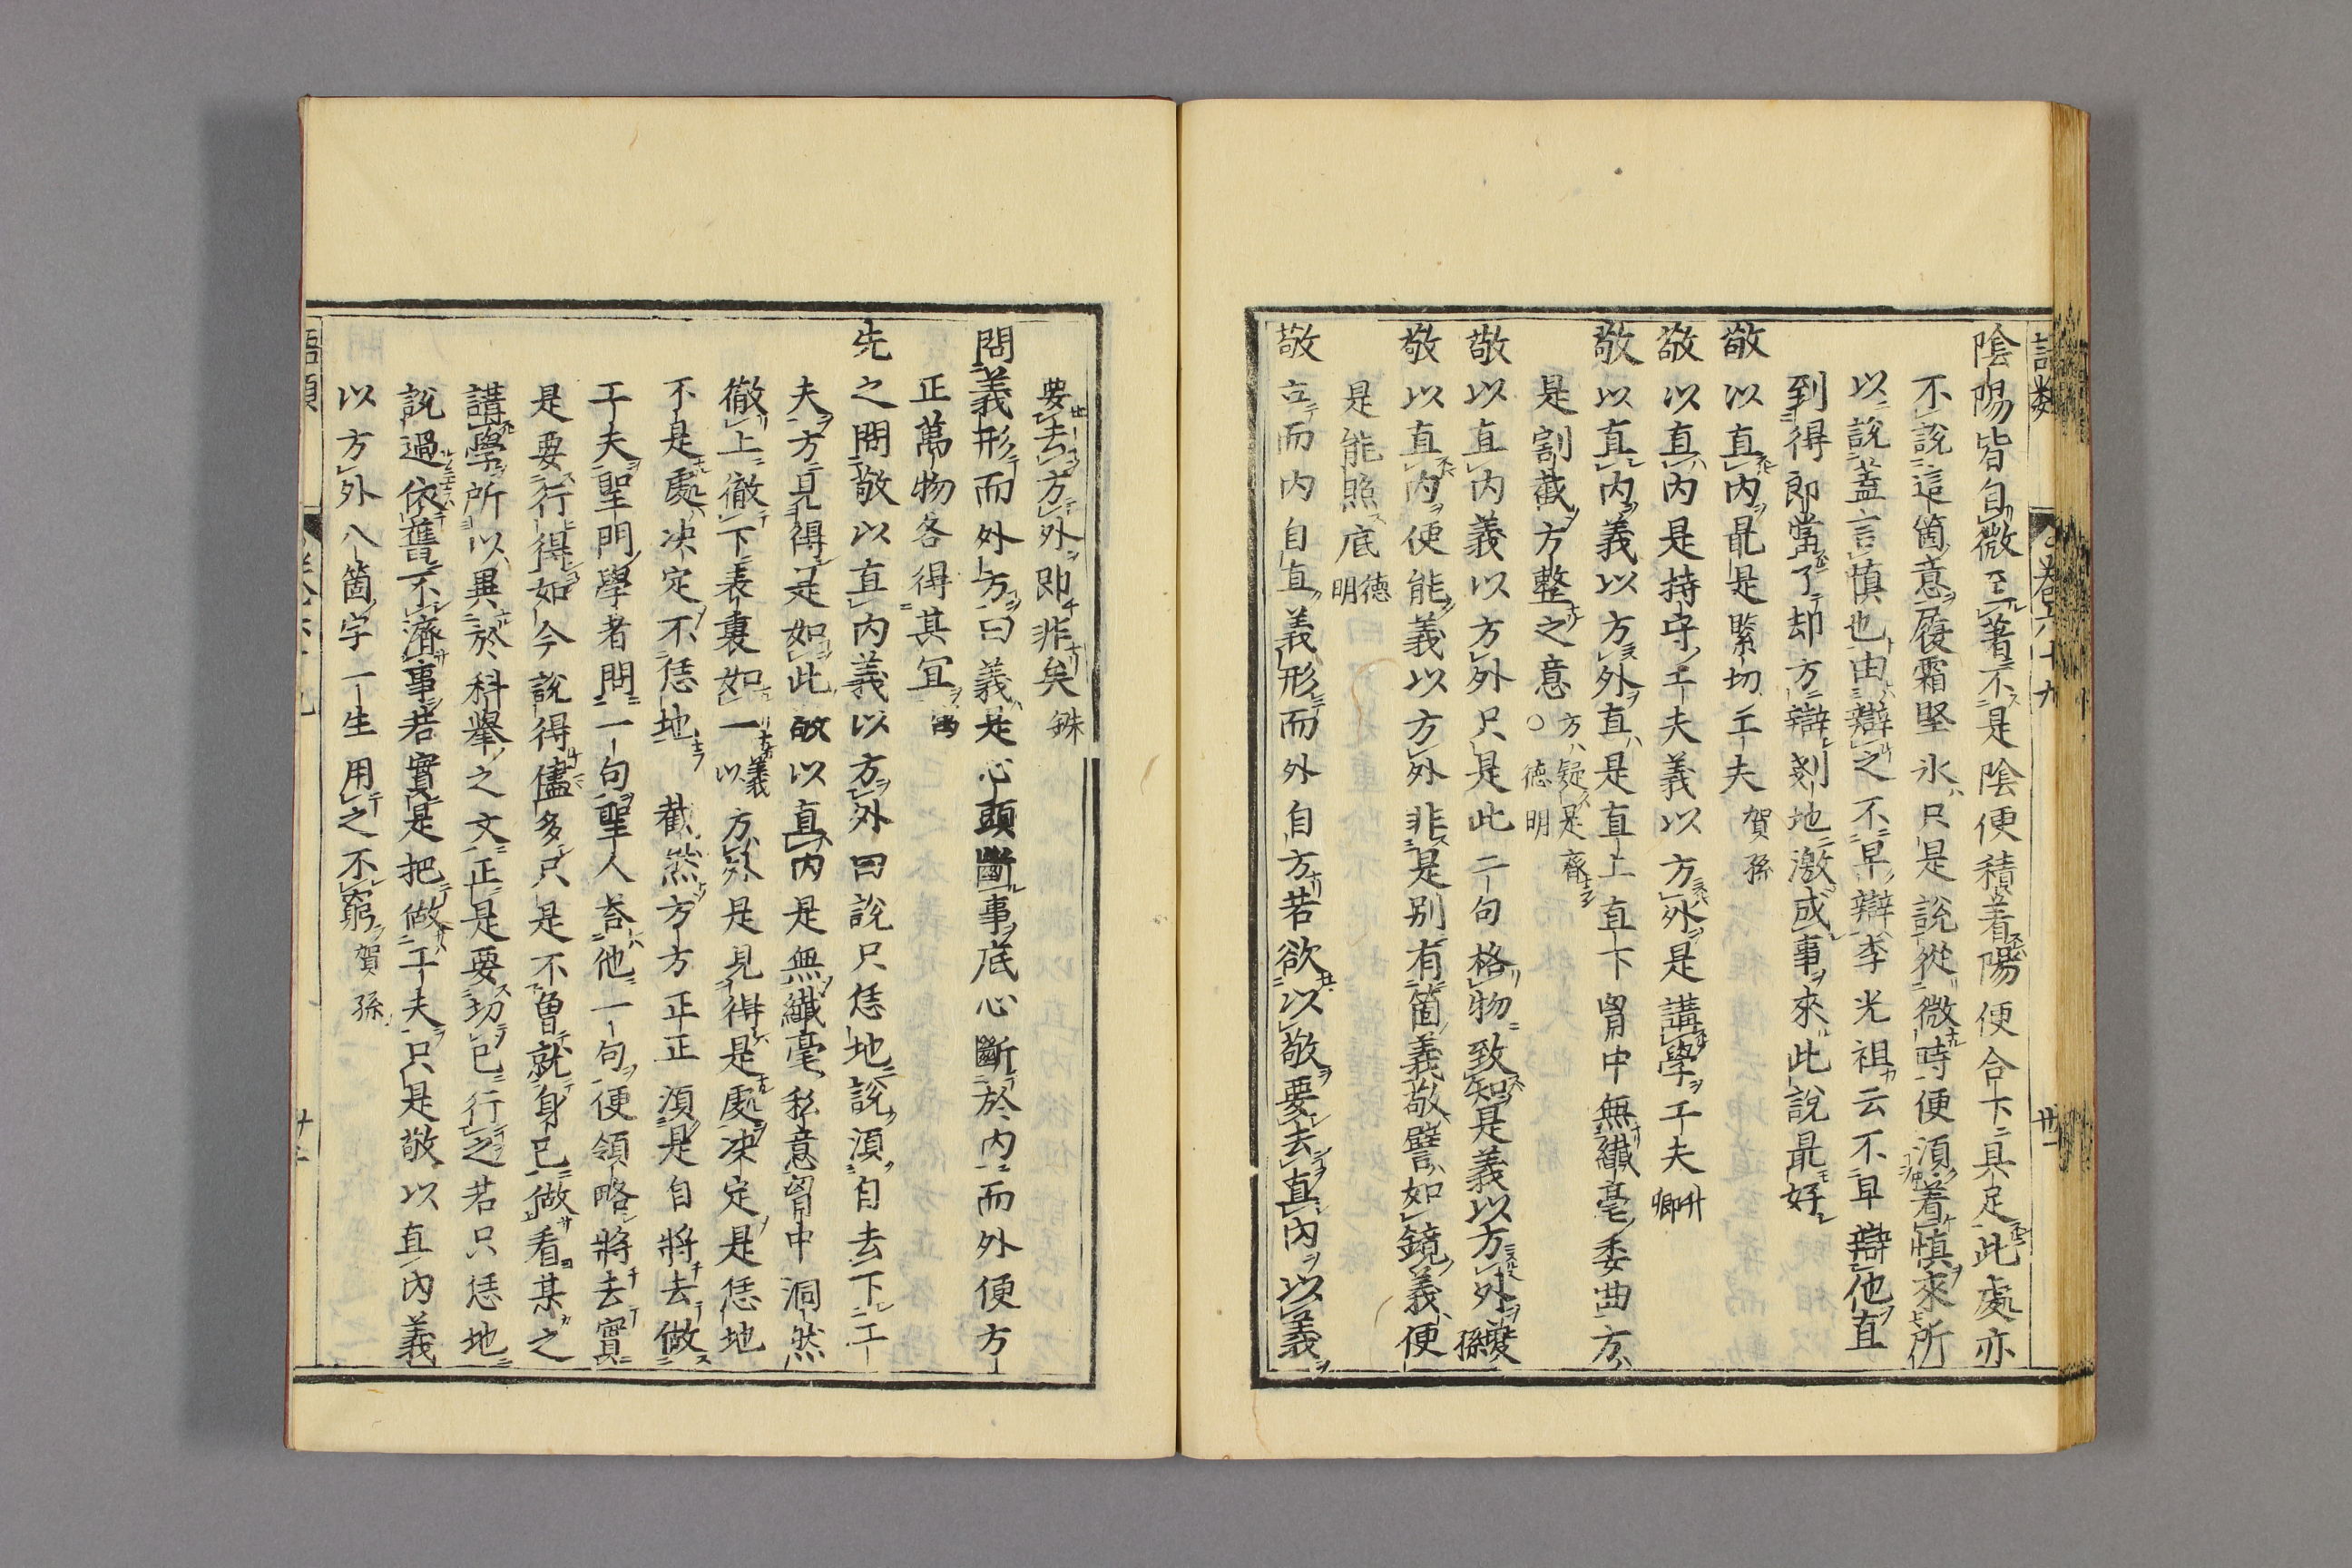 陰陽皆自微至著不是陰便積著陽便合下具足此處亦
不說這箇意履霜堅氷只是說從微時便須着慎來所
以說蓋言慎也由辯之不早辯李光祖云不早辯他直
到得郎當了却方辯剗地激成事來此說最好
敬以直內最是緊切工夫賀孫
敬以直內是持守工夫義以方外是講學工夫升卿
敬以直內義以方外直是直上直下胷中無纎毫委曲方
是割截方整之意方疑是齊〇德明
敬以直內義以方外只是此二句格物致知是義以方外夔孫
敬以直內便能義以方外非是別有箇義敬譬如鏡義便
是能照底德明
敬立而內自直義形而外自方若欲以敬要去直內以義
要去方外即非矣銖
問義形而外方曰義是心頭斷事底心斷於內而外便方
正萬物各得其宜㽦
先之問敬以直內義以方外曰說只恁地說須自去下工
夫方見得是如此敬以直內是無纎毫私意胷中洞然
徹上徹下表裏如一義以方外是見得是處决定是恁地
不是處决定不恁地截然方方正正須是自將去做
工夫聖門學者問一句聖人荅他一句便領略將去實
是要行得如今說得儘多只是不曾就身已做看某之
講學所以異於科擧之文正是要切已行之若只恁地
說過依舊不濟事若實是把做工夫只是敬以直內義
以方外八箇字一生用之不窮賀孫